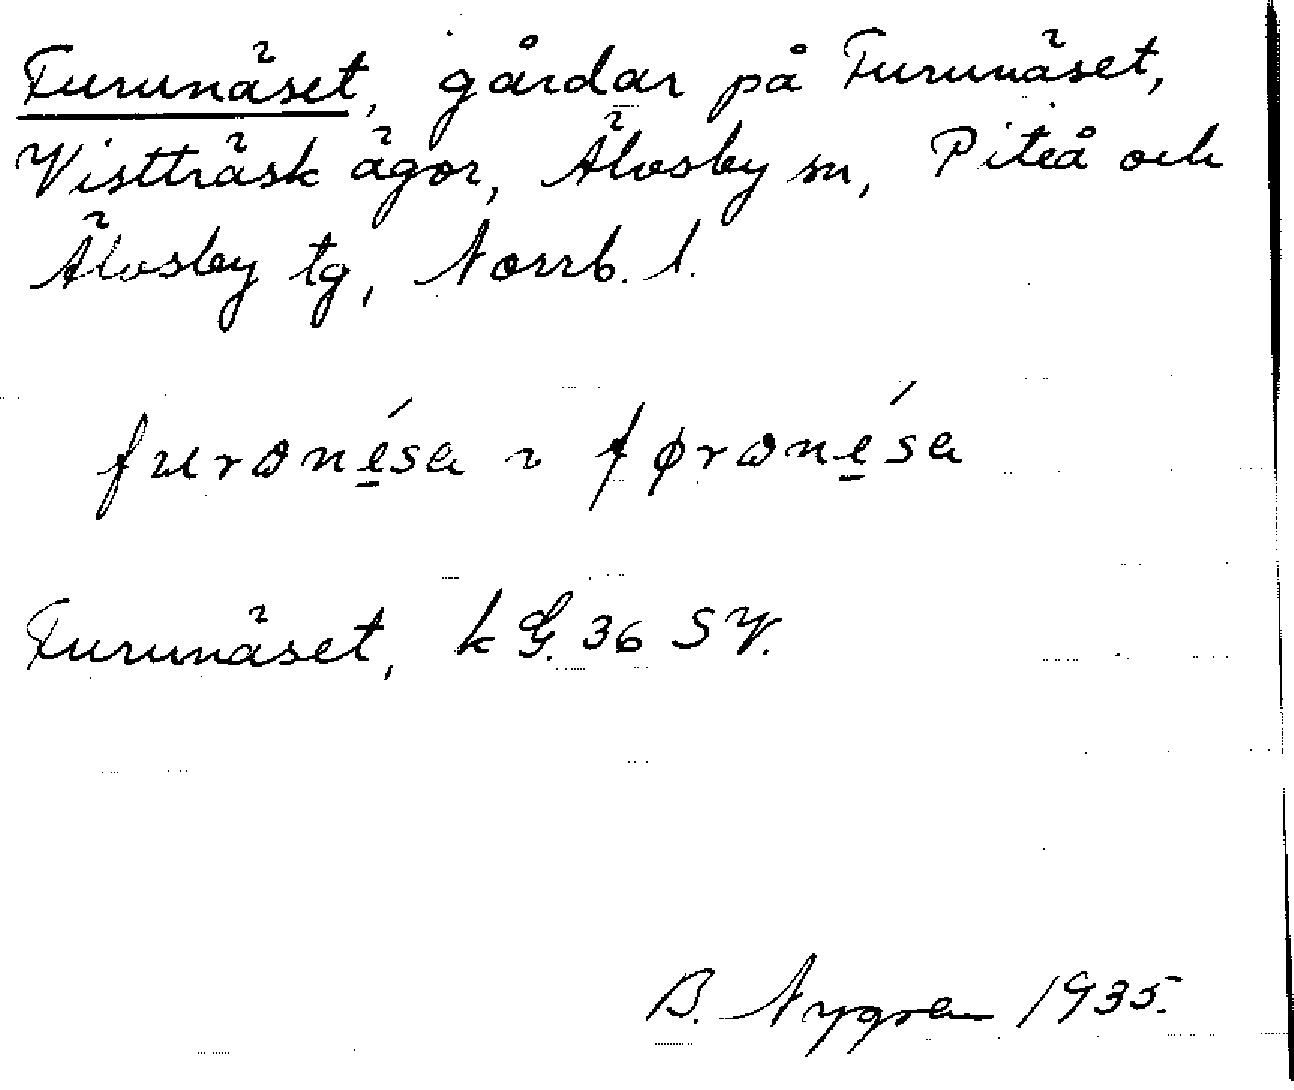 Furunäset, gårdar på Furunäset,
Vistträsk ägor, Älvsby sn, Piteå och
Älvsby tg, Norrb. l.
fur​ɷnésa ~ førɷnésa
Furunäset, k G. 36 SV.
B. Nygren 1935.